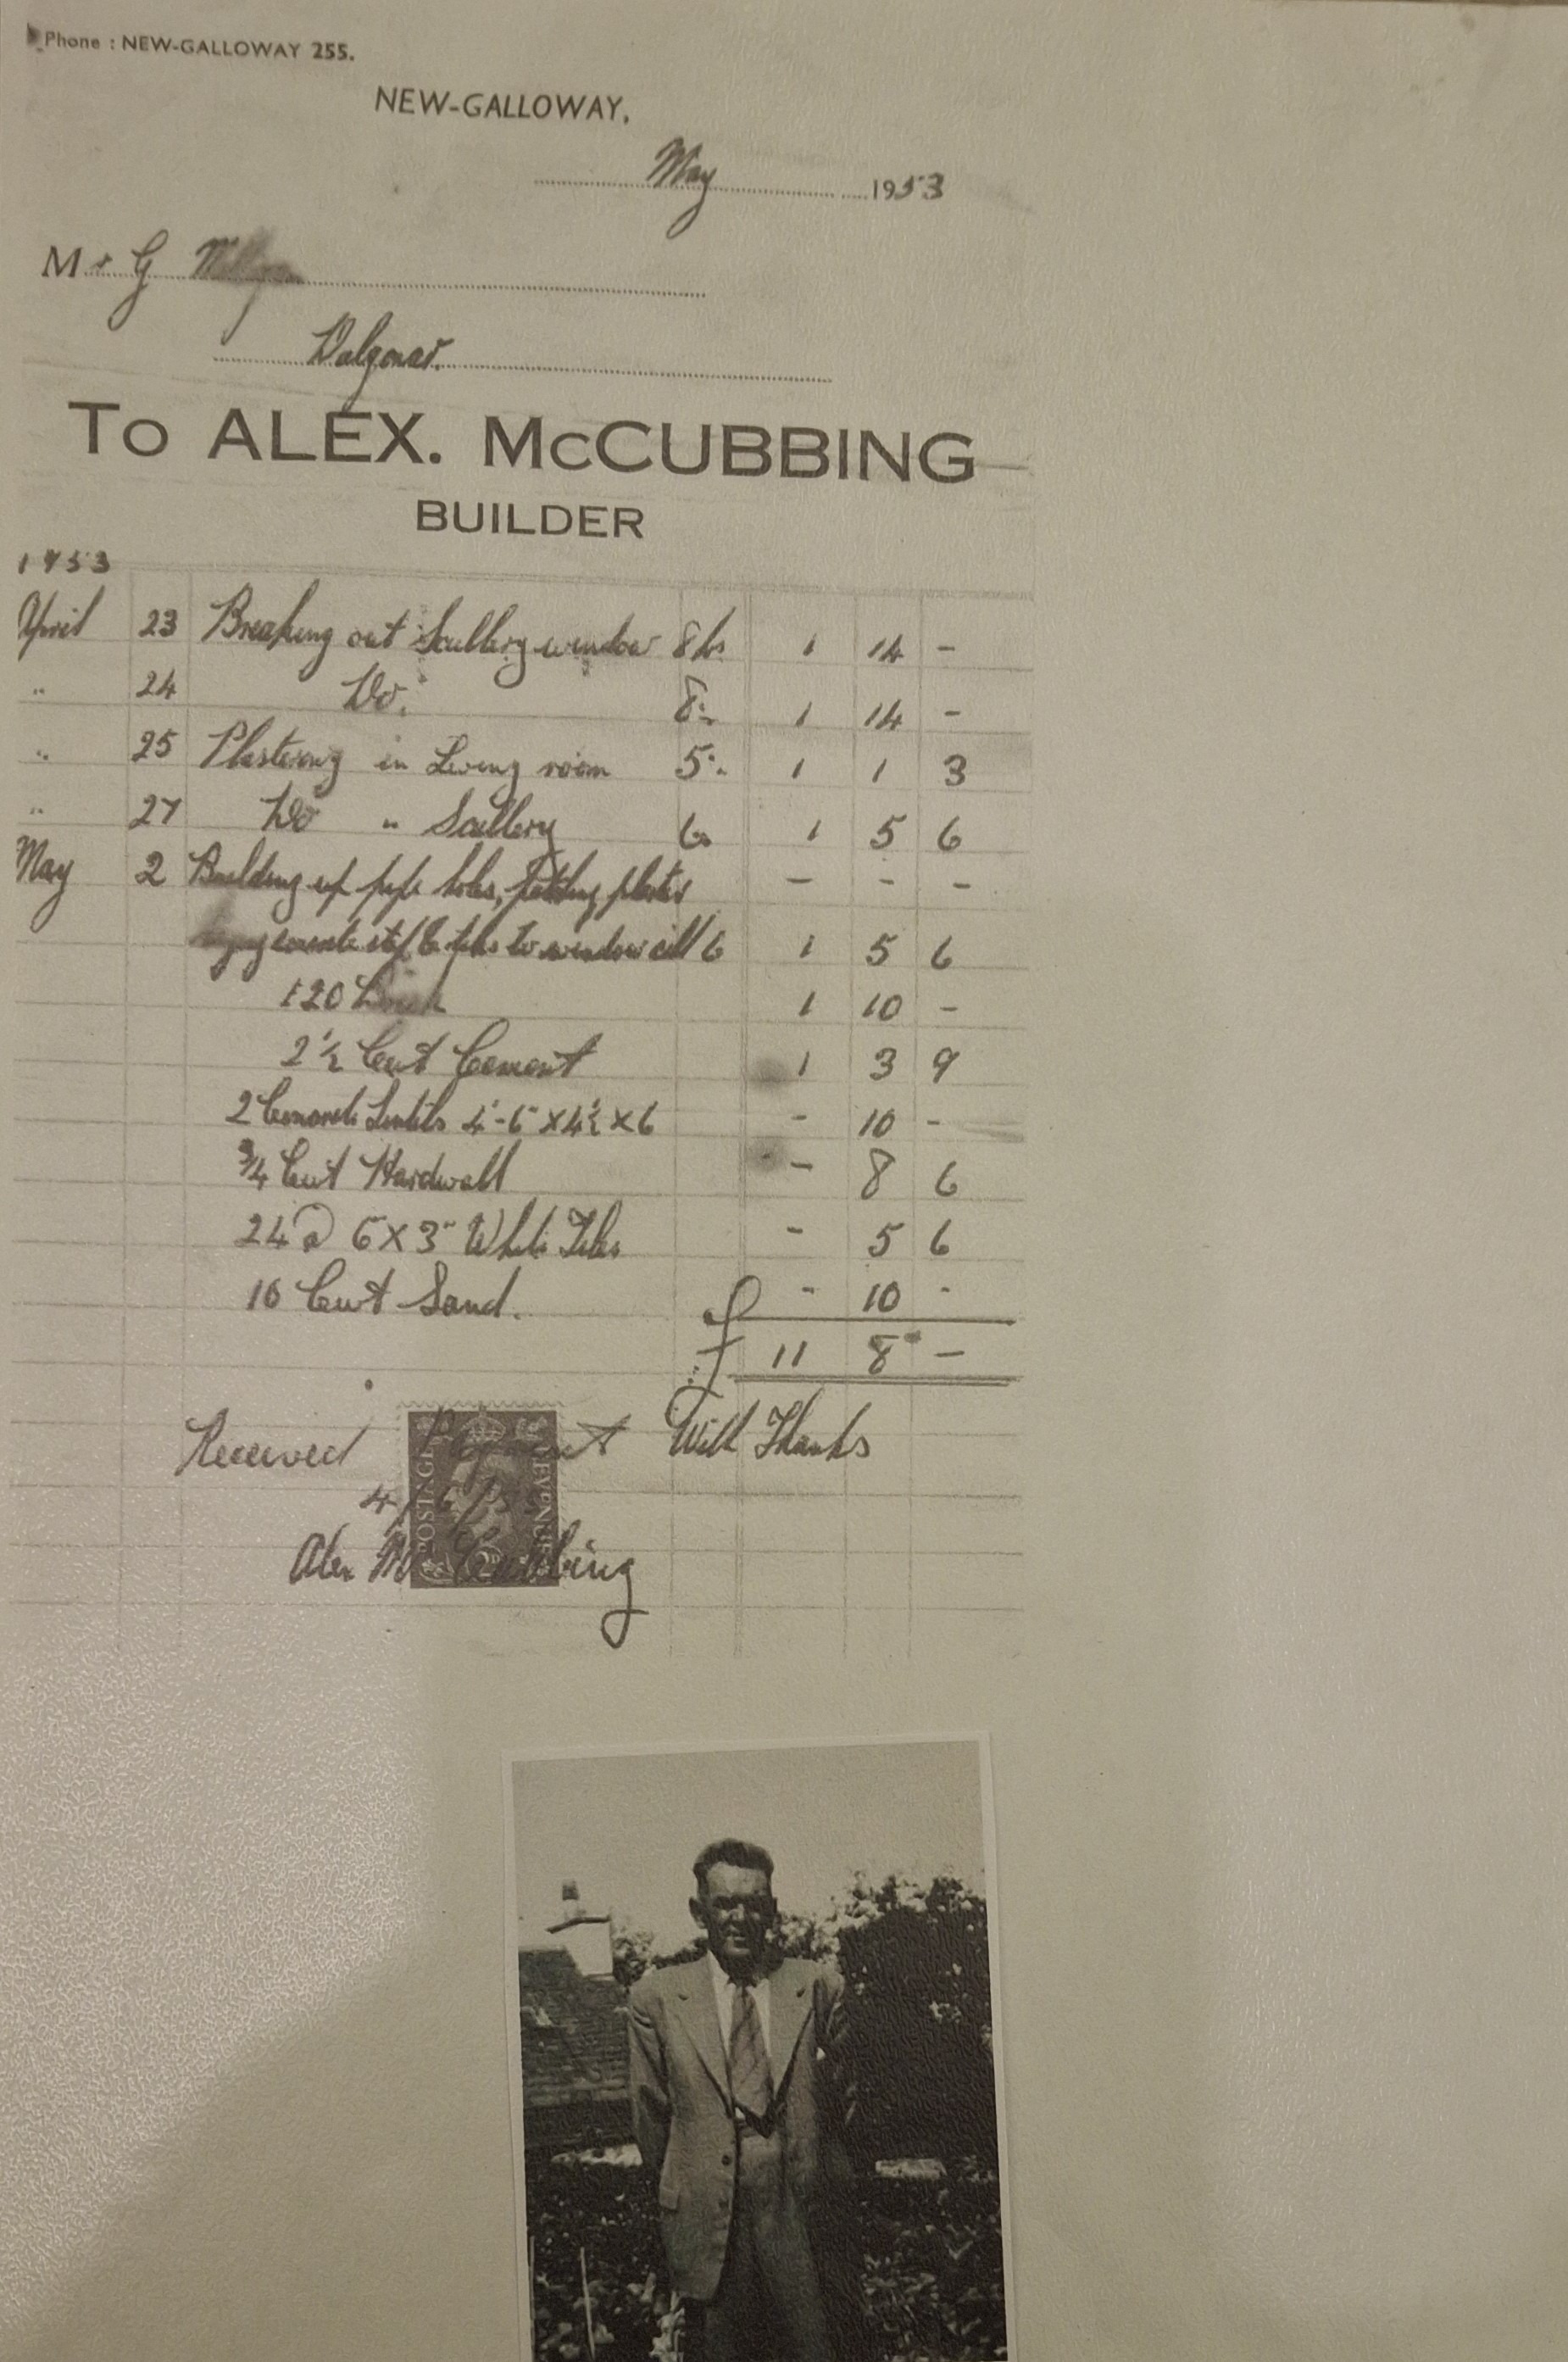 Phone : NEW-GALLOWAY 255.
NEW-GALLOWAY,
May 1953
Mr G
Dalgonar.
To ALEX. McCUBBING
BUILDER
1953
April 23 Breaking out Scullery window 8 hrs 1 14 -
" 24 Do. 8 " 1 14 -
" 25 Plastering in Living room 5 " 1 1 3
" 27 Do " Scullery 6 " 1 5 6
May 2 Building up pipe holes, patching plaster - - -
concrete step & tiles to window cill 6 1 5 6
120 Brick 1 10 -
2 1/2 Cwt Cement 1 3 9
2 Concrete Lintils 4'-6" X 4 1/2 X 6 - 10 -
3/4 Cwt Hardwall - 8 6
24 @ 6 X 3" White Tiles - 5 6
10 Cwt Sand. - 10 -
£ 11 8 -
Received Payment With Thanks
POSTAGE REVENUE
4/6/53
Alex McCubbing